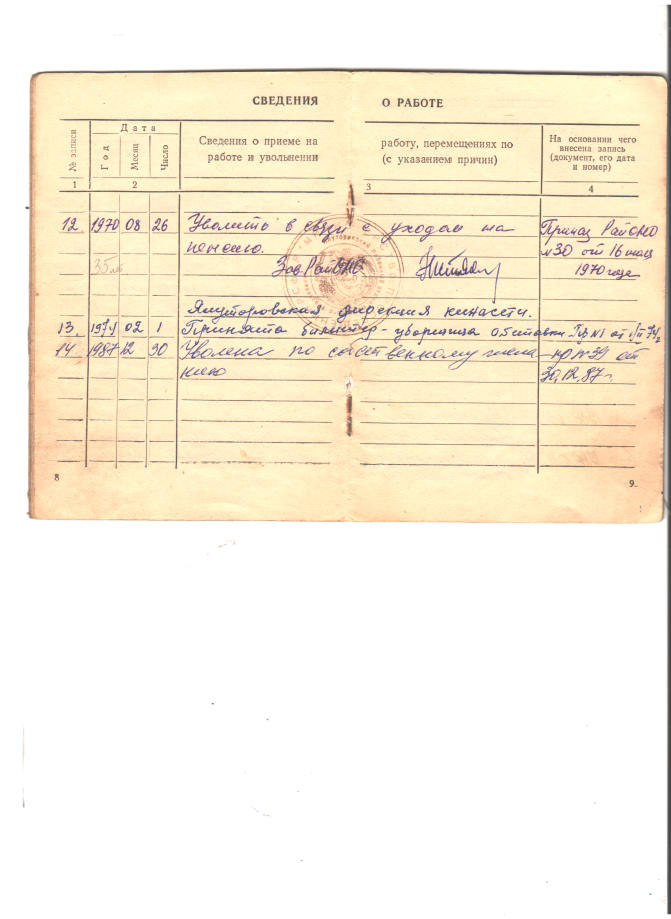 СВЕДЕНИЯ О РАБОТЕ
№ записи
Дата
Год
Месяц
Число
Сведения о приеме на работу, перемещениях по
работе и увольнении (с указанием причин)
На основании чего
внесена запись
(документ, его дата
и номер)
1 2 3 4
12 1970 08 26 Уволить в связи с уходом на Приказ РайОНО
пенсию. №30 от 16
35 Зав. РайОНО 1970 года
Ялуторовская дирекция киносети.
13 02 1 Принята билетер-уборщица 0.5 ставки Пр №1 от
14 1987 12 30 Уволена по собственному жела- пр №39 от
нию 30.12.87г.
8 9